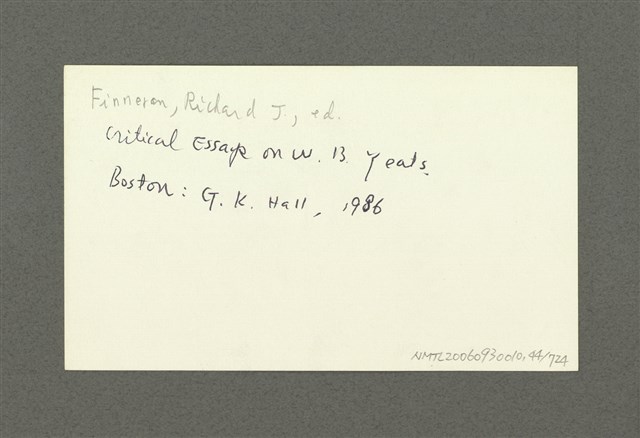 Finneran, Richard J., ed.
Critical Essays on W. B. Yeats.
Boston: G. K. Hall, 1986
NMTL20060930010,44/724